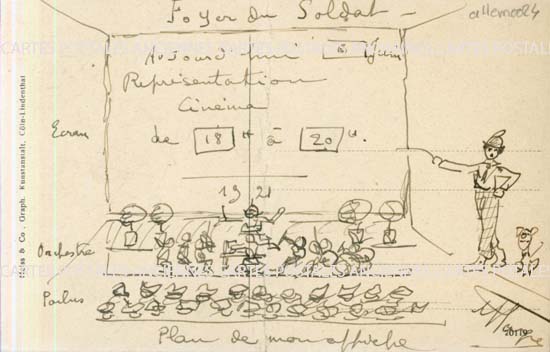 Foyer du Soldat
allemand24
Aujourd'hui 6 Juin
Représentation
Cinéma
de 18H à 20H.
Ecran
1921
Orchestre
Poilus
Plan de mon affiche
Heiss & Co., Graph. Kunstanstalt, Cöln-Lindenthal
CARTES POSTALES ANCIENNES